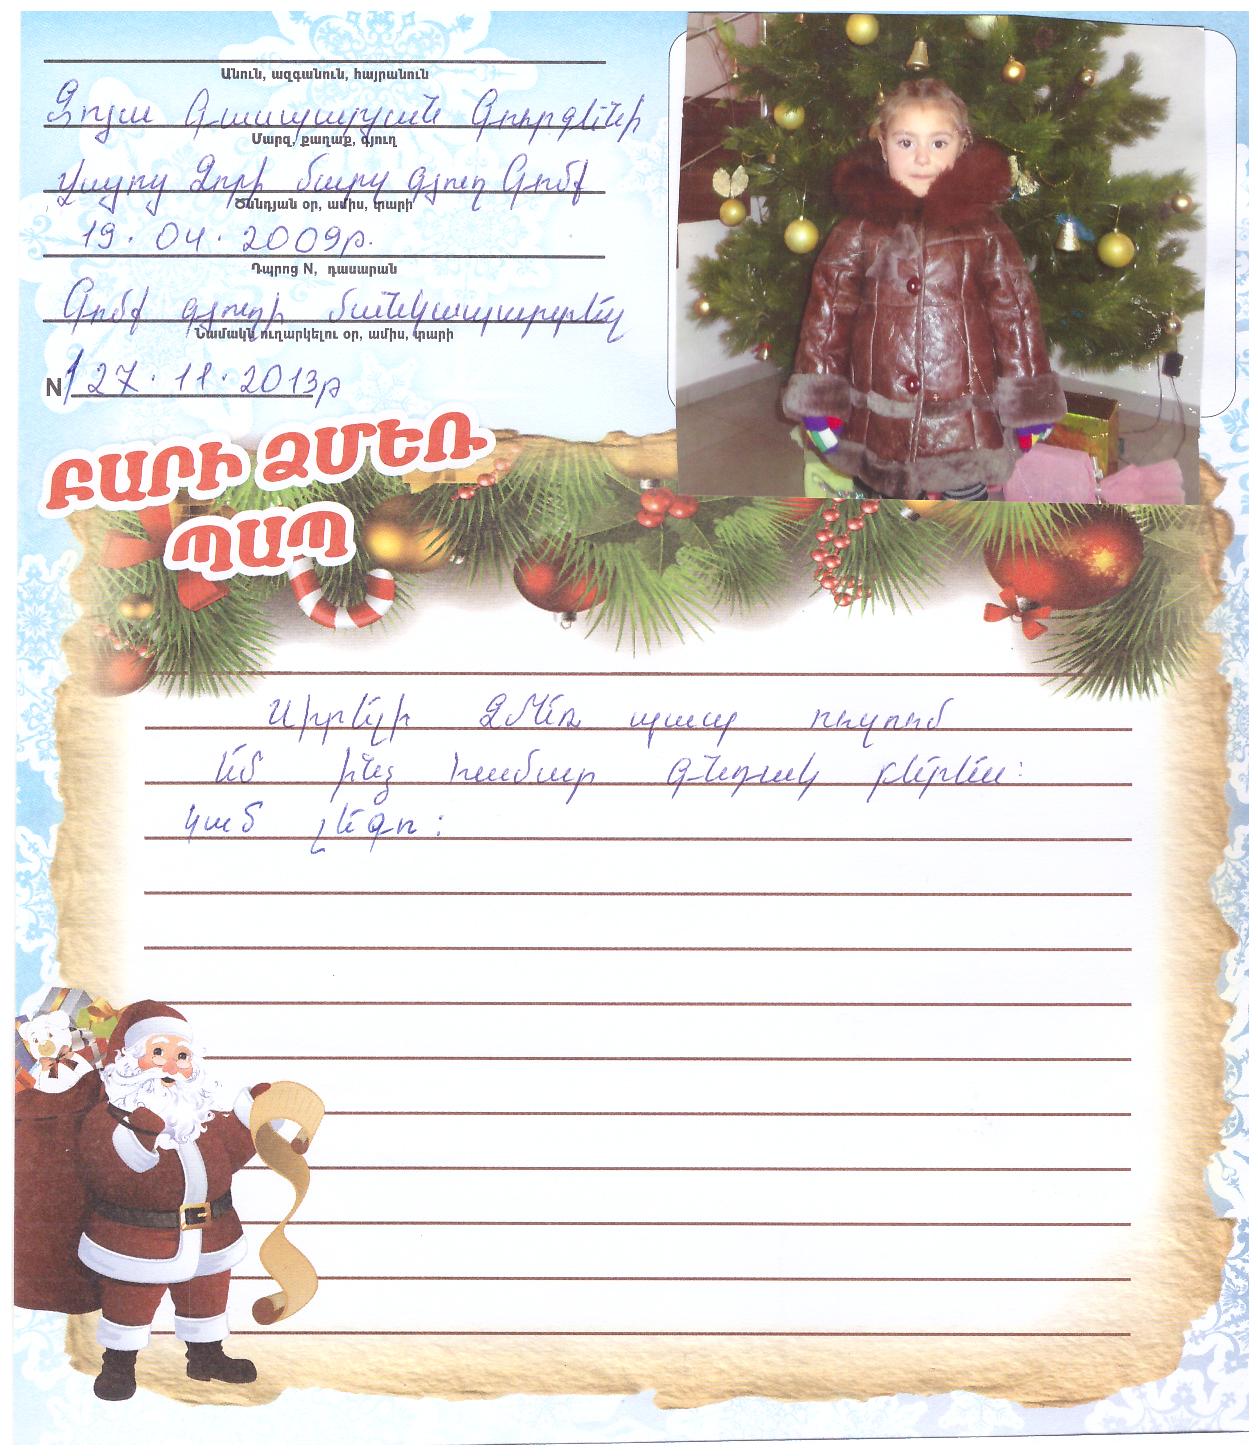 Անուն, ազգանուն, հայրանուն
Զոյա Գասպարյան Գուրգենի
Մարզ, քաղաք, գյուղ
Վայոց Ձորի մարզ գյուղ Գոմք
Ծննդյան օր, ամիս, տարի
19.04.2009թ.
Դպրոց N, դասարան
Գոմք գյուղի մանկապարտեզ
Նամակն ուղարկելու օր, ամիս, տարի
N 1 27.11.2013թ
ԲԱՐԻ ՁՄԵՌ
ՊԱՊ
Սիրելի Ձմեռ պապ ուզում
եմ ինչ համար գնդակ բերես:
կամ լեգո: